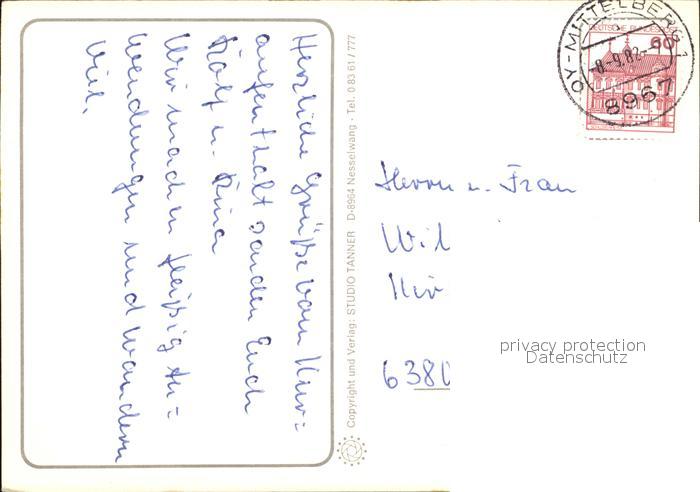 Herzliche Grüße vom Kur-
aufenthalt senden Euch
Rolf u. Rina
Wir machen fleißig An-
wendungen und wandern
viel.
Copyright und Verlag: STUDIO TANNER D-8964 Nesselwang · Tel. 0 83 61 / 777
OY-MITTELBERG 1
-8.-9.82-
8967
DEUTSCHE BUNDESPOST
60
Herrn u. Frau
Wil
Kir
6380
privacy protection
Datenschutz